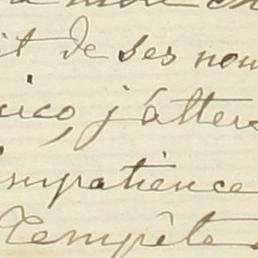 it de ses nou
j'atten
impatience
Tempête